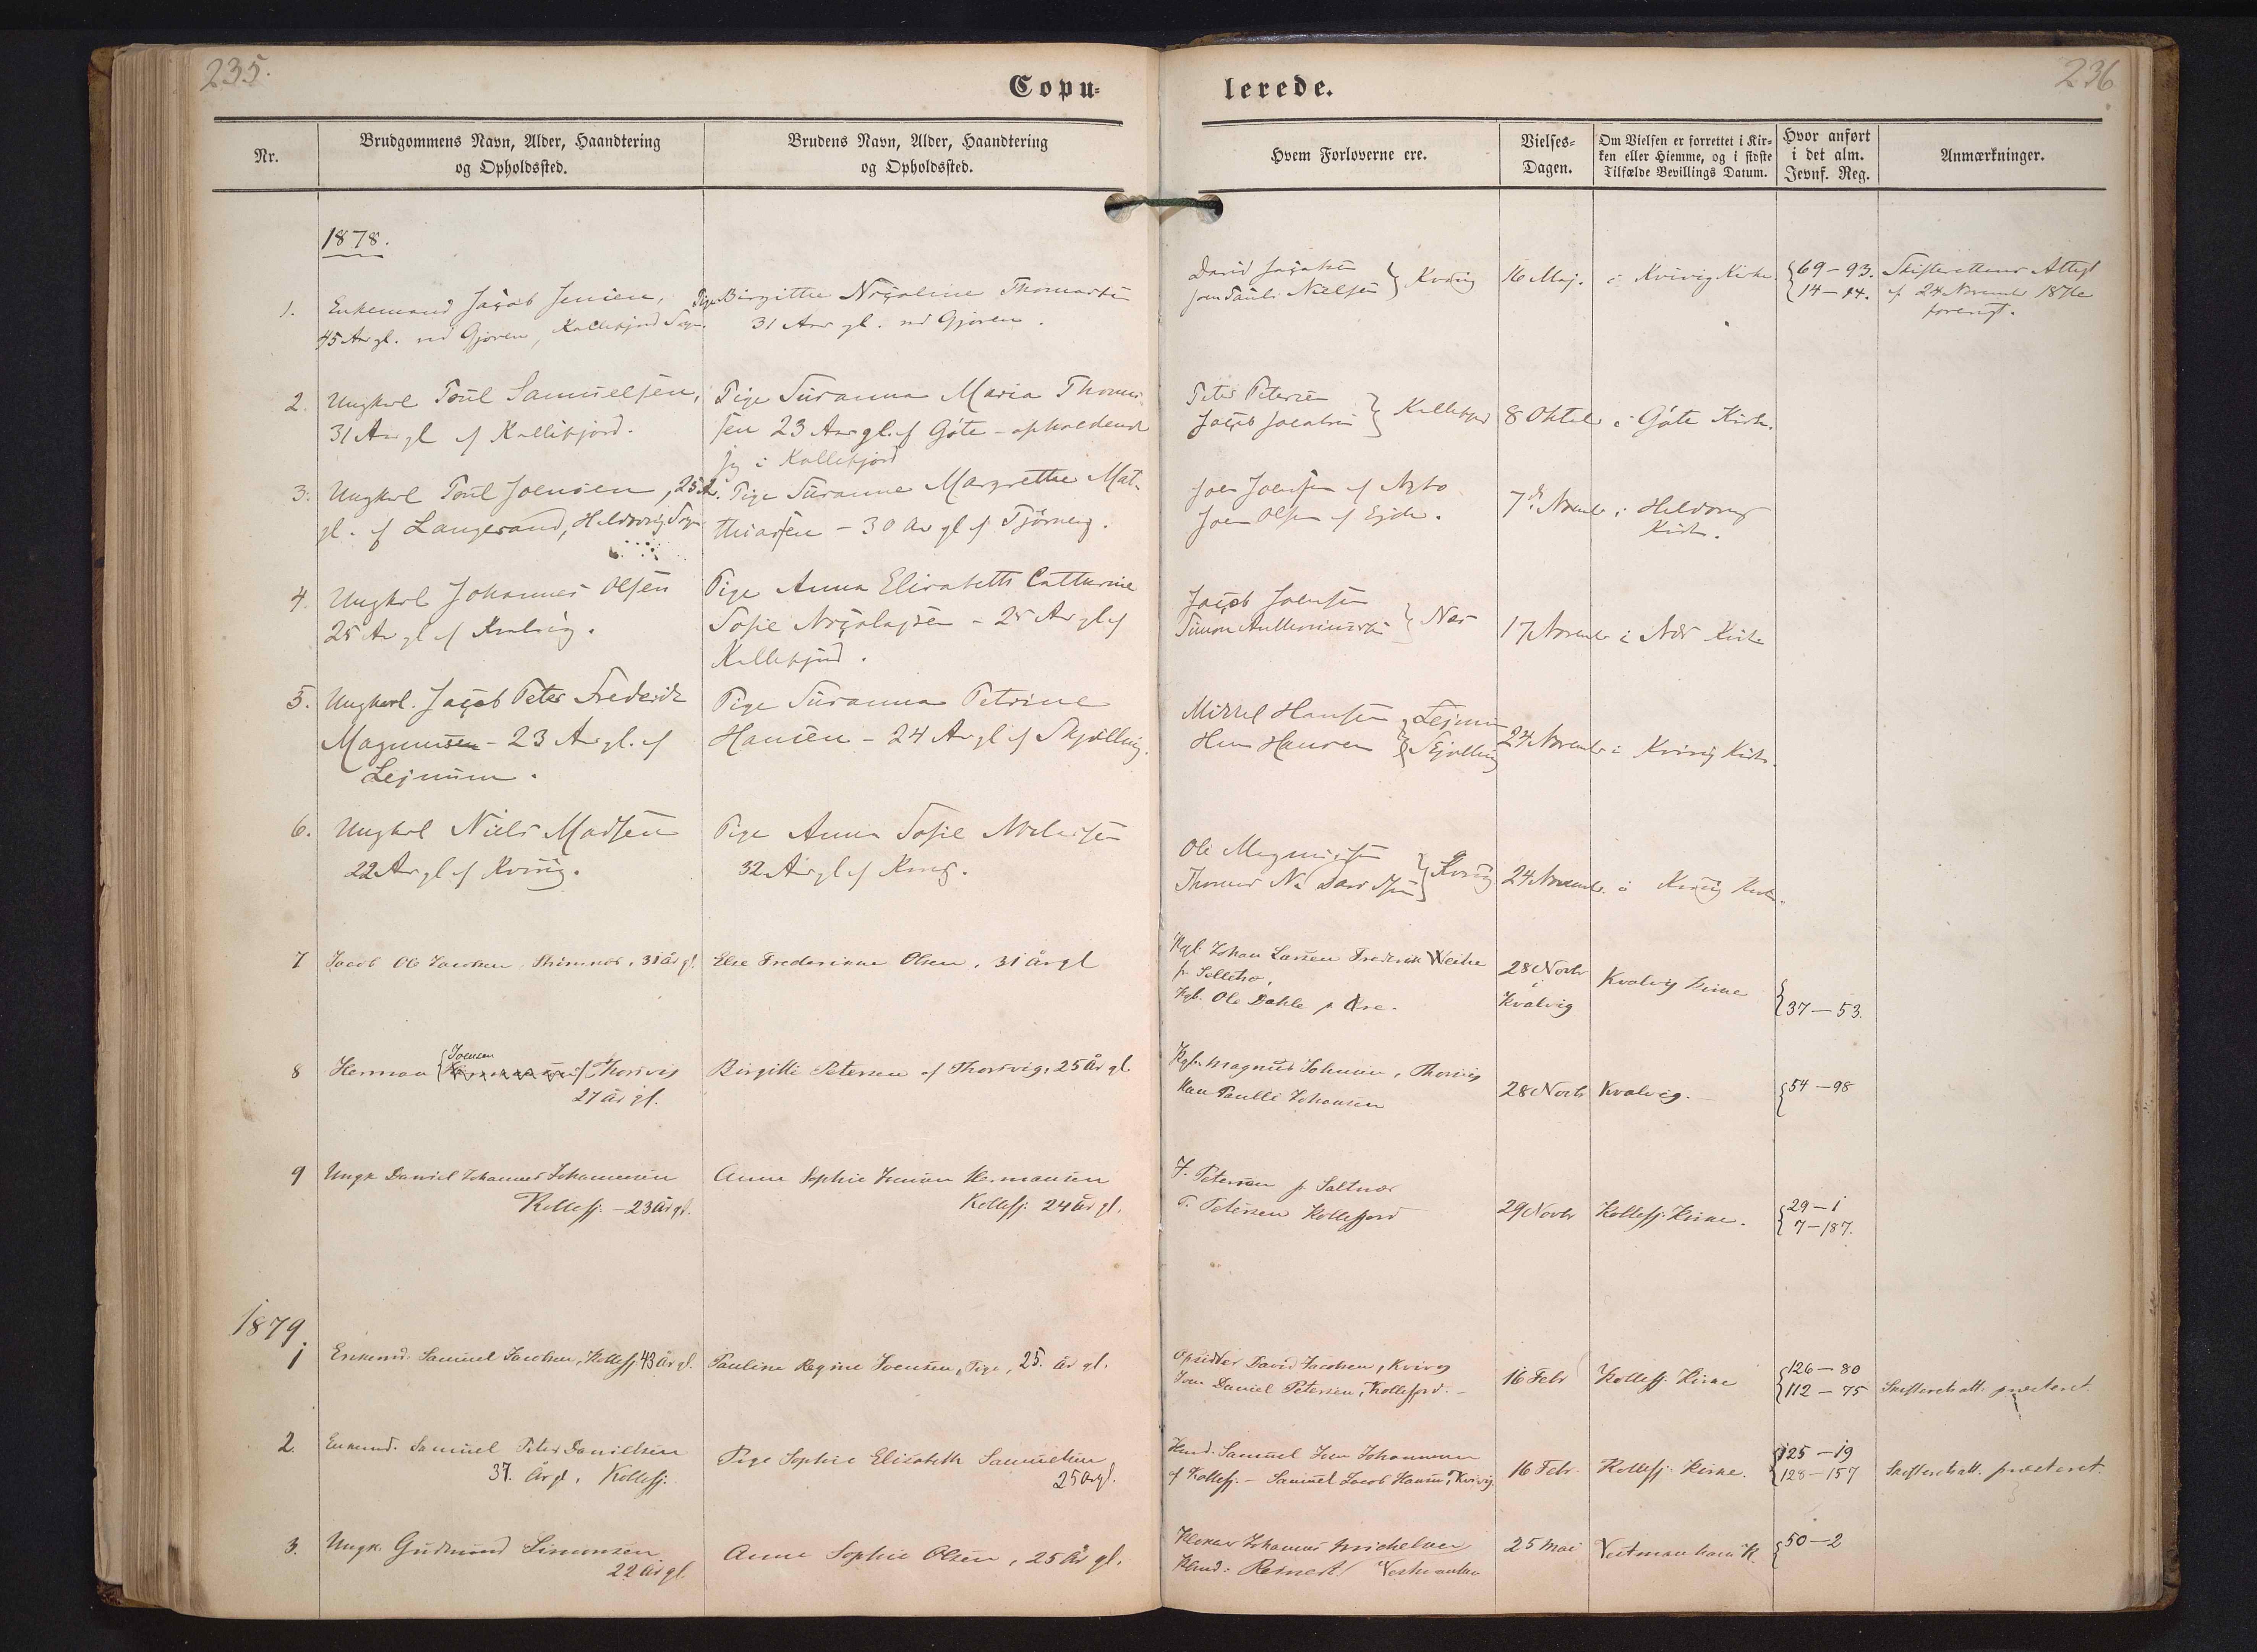 235.
236
Copu-
lerede.
Nr.
Brudgommens Navn, Alder, Haandtering
og Opholdssted.
Brudens Navn, Alder, Haandtering
og Opholdssted.
Hvem Forloverne ere.
Vielses-
Dagen.
Om Vielsen er forrettet i Kir-
ken eller Hiemme, og i sidste
Tilfælde Bevillings Datum.
Hvor anført
i det alm.
Jevnf. Reg.
Anmærkninger.
1878.
1.
Enkemand Jacob Jensen,
45 Aar gl. ved Gjoven, Kollefjord Sogn.
Pige Birgitte Nicoline Thomasen
31 Aar gl. ved Gjoven.
David Jacobsen
Joen Pauli Nielsen } Kvivig
16 Maj.
i Kvivig Kirke.
69-93.
14-14.
Skifterettens Attest
af 24 November 1876
forevist.
2.
Ungkarl Poul Samuelsen,
31 Aar gl af Kollefjord.
Pige Susanna Maria Thomas-
sen 23 Aar gl. af Göte - opholdende
sig i Kollefjord
Peter Petersen
Jacob Jacobsen } Kollefjord
8 Oktob
i Göte Kirke.
3.
Ungkarl Poul Joensen, 25 A.
gl. af Langesand, Heldervig Sogn
Pige Susanne Margrethe Mat-
thiassen - 30 Aar gl af Tjörnevig.
Joen Joensen af Nybo
Joen Olsen af Ejde.
7de Novemb
i Heldervig
Kirke.
4.
Ungkarl Johannes Olsen
25 Aar gl af Kvalvig.
Pige Anna Elisabeth Catharine
Sofie Nicolajsen - 25 Aar gl af
Kollefjord.
Jacob Joensen
Simon Anthoniussen } Nes
17 Novemb
i Nes Kirke
5.
Ungkarl. Jacob Peter Frederik
Magnussen - 23 Aar gl. af
Lejnum.
Pige Susanna Petrine
Hansen - 24 Aar gl af Skjælling.
Mikkel Hansen, Lejnum
Hans Hansen } Skjælling
24 November
i Kvivig Kirke.
6.
Ungkarl Niels Madsen
22 Aar gl af Kvivig.
Pige Anna Sofie
32 Aar gl af Kvivig.
Ole Magnussen
Thomas Davidsen } Kvivig
24 November
i Kvivig Kirke.
7
Jacob Ole Jacobsen, 31 år gl.
Else Frederikke Olsen, 31 år gl
Kgb. Johan Larsen Frederik Weihe
p. Selletræ,
Kgb. Ole Dahle p. Øre.
28 Novbr
i
Kvalvig
Kvalvig Kirke
37-53.
8
Herman Joensen af Thorsvig
27 år gl.
Birgitte Petersen af Thorsvig, 25 år gl.
Kgb. Magnus Johansen, Thorsvig
Hans Paulli Johansen
28 Novbr
Kvalvig.
54-98
9
Ungk Daniel Johannes Johannesen
Kollefj. - 23 år gl.
Anna Sophie Hermansen
Kollefj. 24 år gl.
J. Petersen p. Saltnæs
P. Petersen Kollefjord
29 Novbr
Kollefj. Kirke.
29-1
7-187.
1879
1
Enkemd. Samuel Jacobsen, Kollefj. 43 år gl.
Pauline Regine Joensen, Pige, 25. år gl.
Opsidder David Jacobsen, Kvivig
Joen Daniel Petersen, Kollefjord. -
16 Febr
Kollefj. Kirke
126-80
112-75
Skifteretsatt. præsteret.
2.
Enkemd. Samuel Peter Danielsen
37. År gl., Kollefj.
Pige Sophie Elisabeth Samuelsen
25 År gl.
Huusmd. Samuel Joen Johannesen
af Kollefj. - Samuel Jacob Hansen, Kvivig
16 Febr.
Kollefj. Kirke.
125-19
128-157
Skifteretsatt. præsteret.
3.
Ungk. Gudmund Simonsen
22 år gl.
Anne Sophie Olsen, 25 År gl.
Klokker Johannes Michelsen
25 Mai
Vestmanhavn K.
50-2